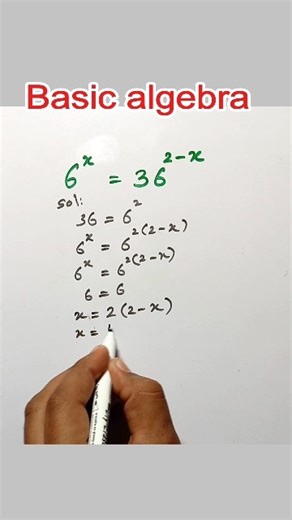 Basic algebra
6^x = 36^{2-x}
sol:
36 = 6^2
6^x = 6^{2(2-x)}
6^x = 6^{2(2-x)}
6 = 6
x = 2(2-x)
x =